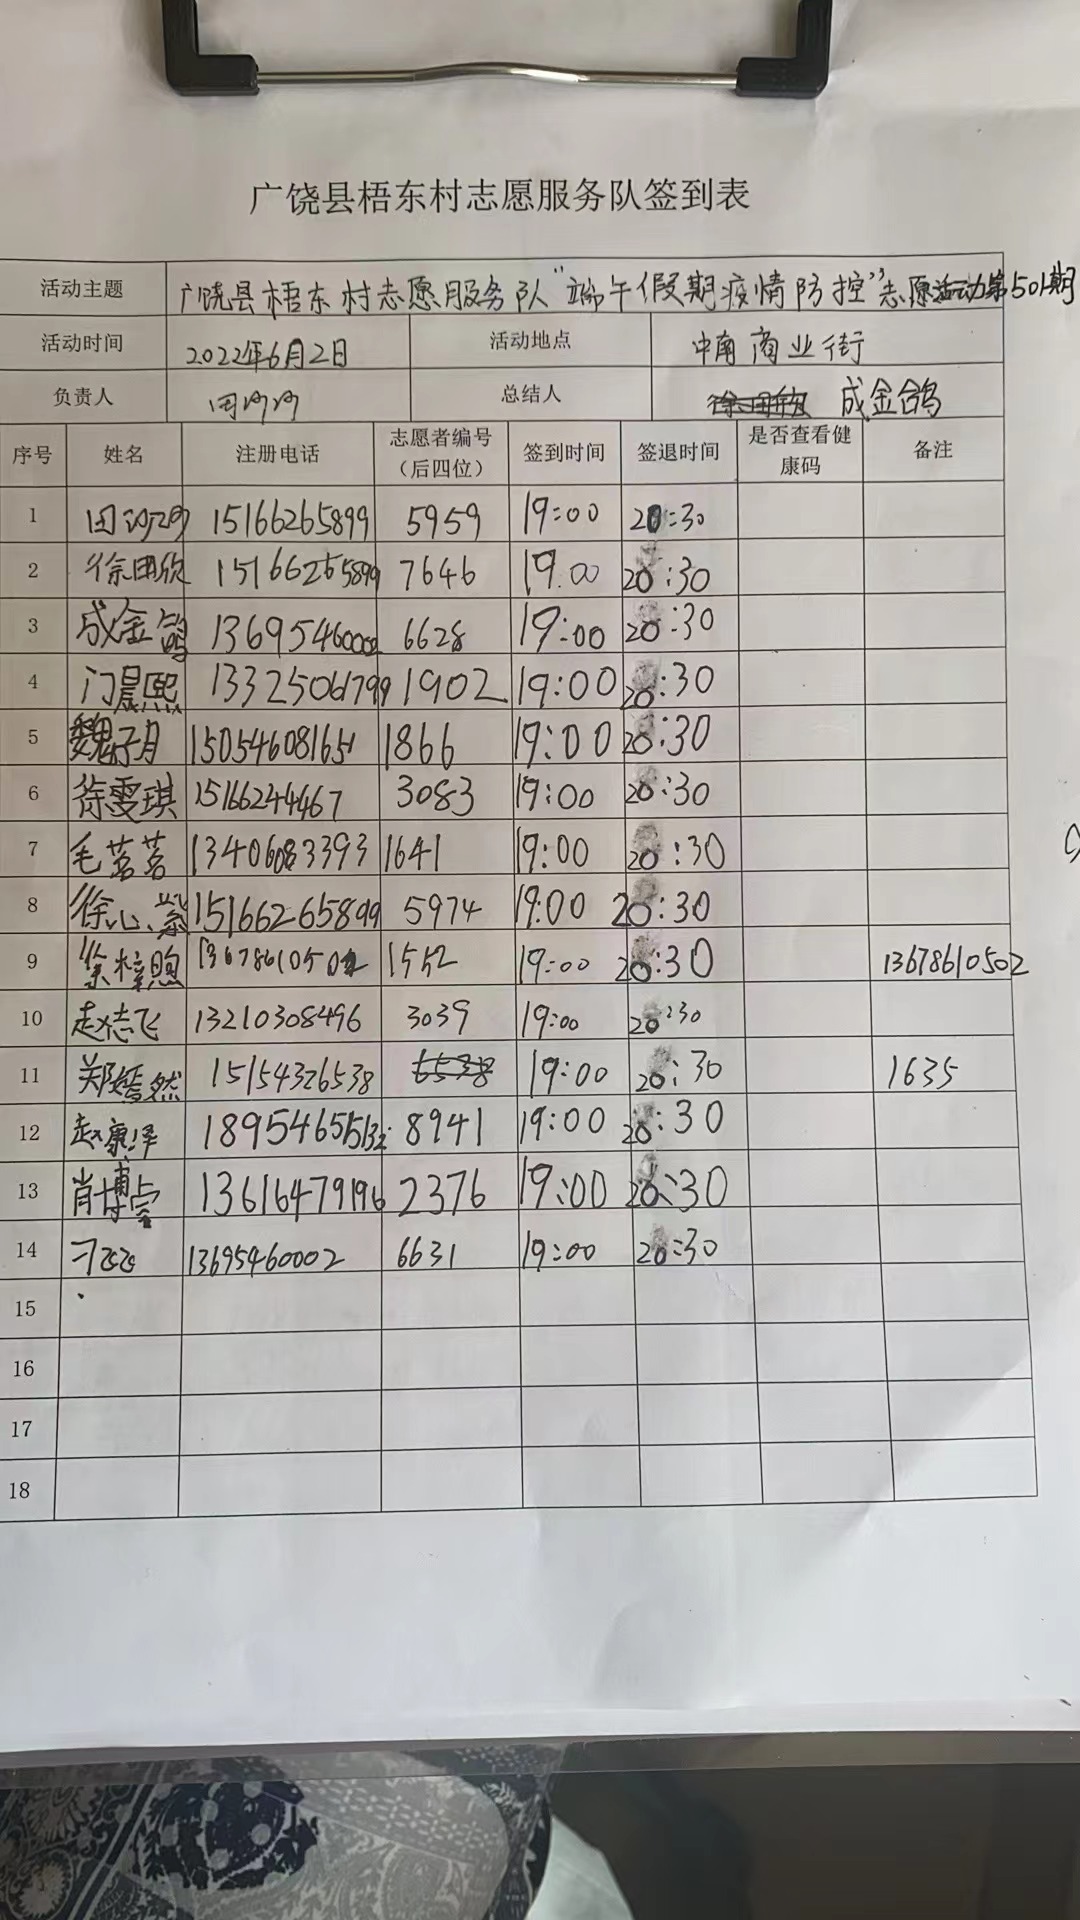 广饶县梧东村志愿服务队签到表
活动主题 广饶县梧东村志愿服务队“端午假期疫情防控”志愿活动第501期
活动时间 2022年6月2日 活动地点 中南商业街
负责人 总结人 成金鸽
序号 姓名 注册电话 志愿者编号（后四位） 签到时间 签退时间 是否查看健康码 备注
1 15166265899 5959 19:00 20:30
2 徐田欣 15166265899 7646 19:00 20:30
3 成金鸽 13695460002 6628 19:00 20:30
4 门晨熙 13325061799 1902 19:00 20:30
5 魏子月 15054608165 1866 19:00 20:30
6 徐雯琪 15166244467 3083 19:00 20:30
7 毛茗茗 13406083393 1641 19:00 20:30
8 徐心紫 15166265899 5974 19:00 20:30
9 徐梓煦 13678610502 1552 19:00 20:30 13678610502
10 赵志飞 13210308496 3039 19:00 20:30
11 郑嫣然 15154326538 19:00 20:30 1635
12 赵康泽 8941 19:00 20:30
13 肖博 13616479196 2376 19:00 20:30
14 13695460002 6631 19:00 20:30
15
16
17
18